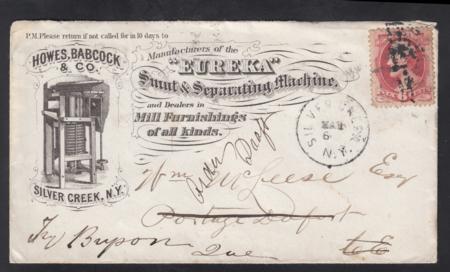 P.M. Please return if not called for in 10 days to
HOWES, BABCOCK
& CO.
SILVER CREEK, N.Y.
Manufacturers of the
"EUREKA"
Smut & Separating Machine,
and Dealers in
Mill Furnishings
of all kinds.
SILVER CREEK
MAR
6
N.Y.
Wm McLeese Esq
Portage Du Fort
Try Bryson
Que